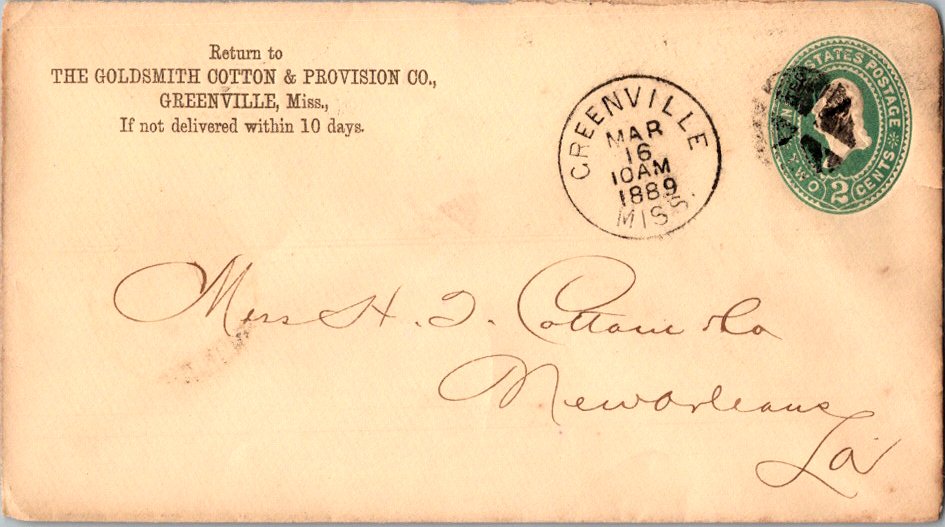 Return to
THE GOLDSMITH COTTON & PROVISION CO.,
GREENVILLE, Miss.,
If not delivered within 10 days.
GREENVILLE
MAR
16
10AM
1889
MISS.
STATES POSTAGE
TWO 2 CENTS
Mess H. T. Cottam & Co
New Orleans
La